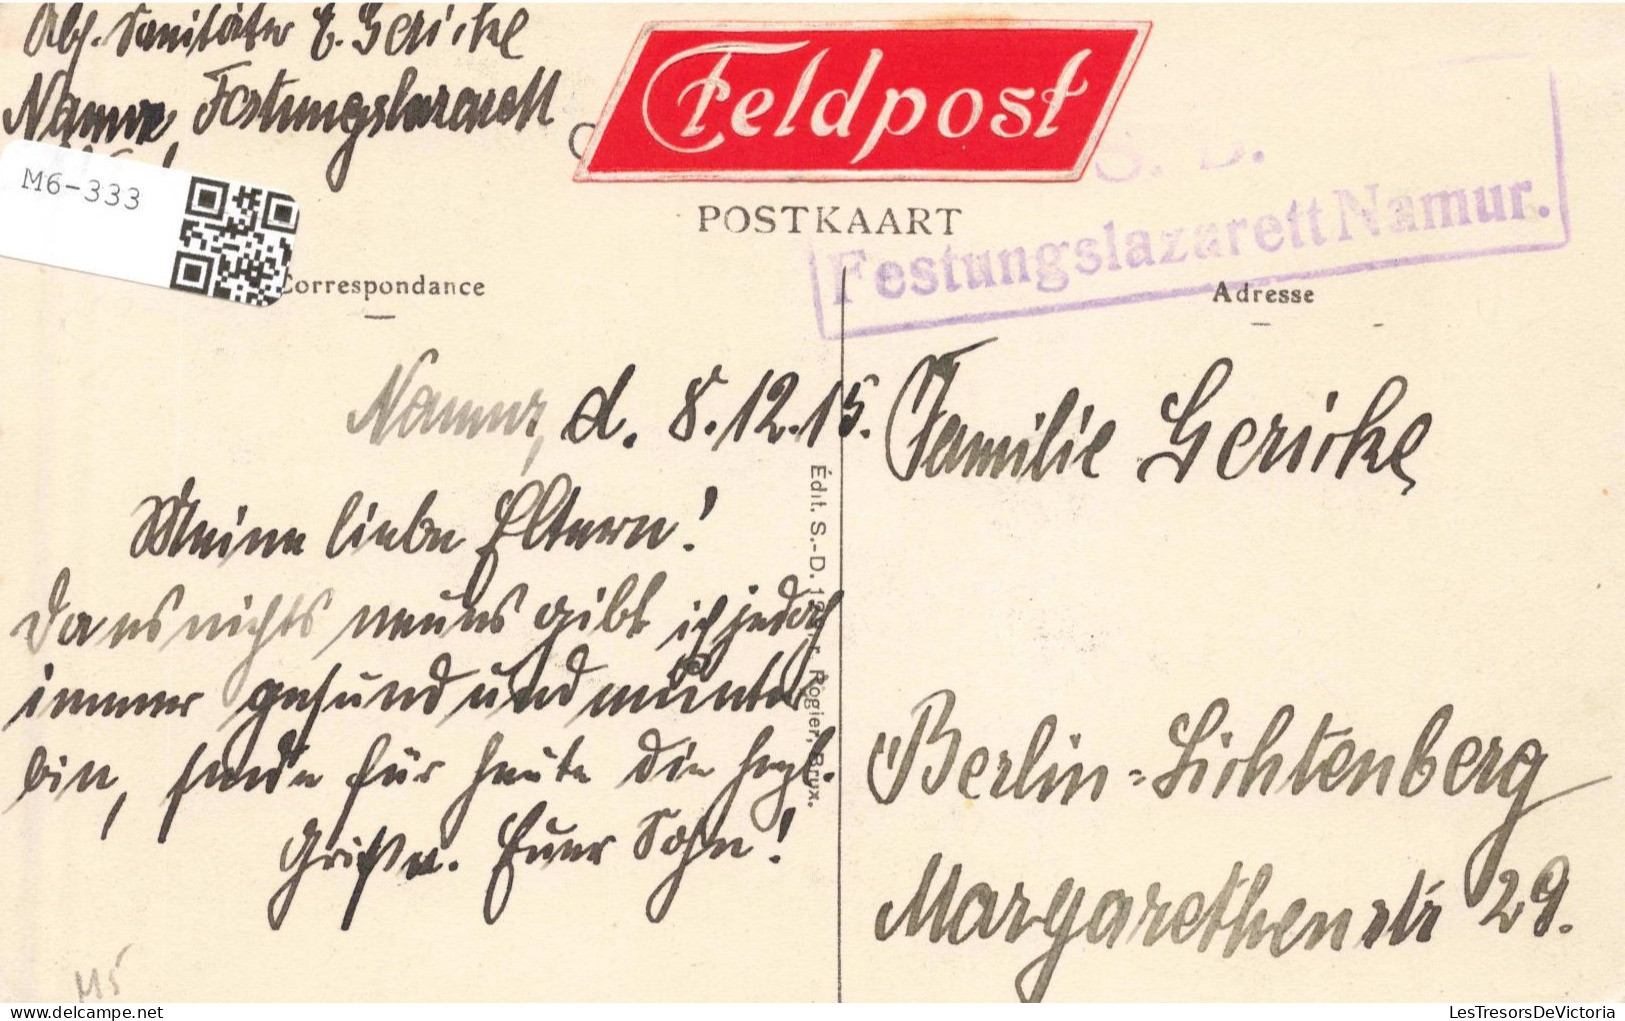 Abs. Sanitäter E. Gericke
Namur, Festungslazarett
M6-333
Feldpost
S. B.
Festungslazarett Namur.
POSTKAART
Correspondance
Adresse
Namur, d. 8.12.15.
Meine lieben Eltern!
Da es nichts neues gibt ich jedoch
immer gesund und munter
bin, sende für heute die herzl.
Grüße. Euer Sohn!
Édit. S.-D. r. Rogier, Brux.
Familie Gericke
Berlin-Lichtenberg
Margarethenstr 29.
M5
LesTresorsDeVictoria